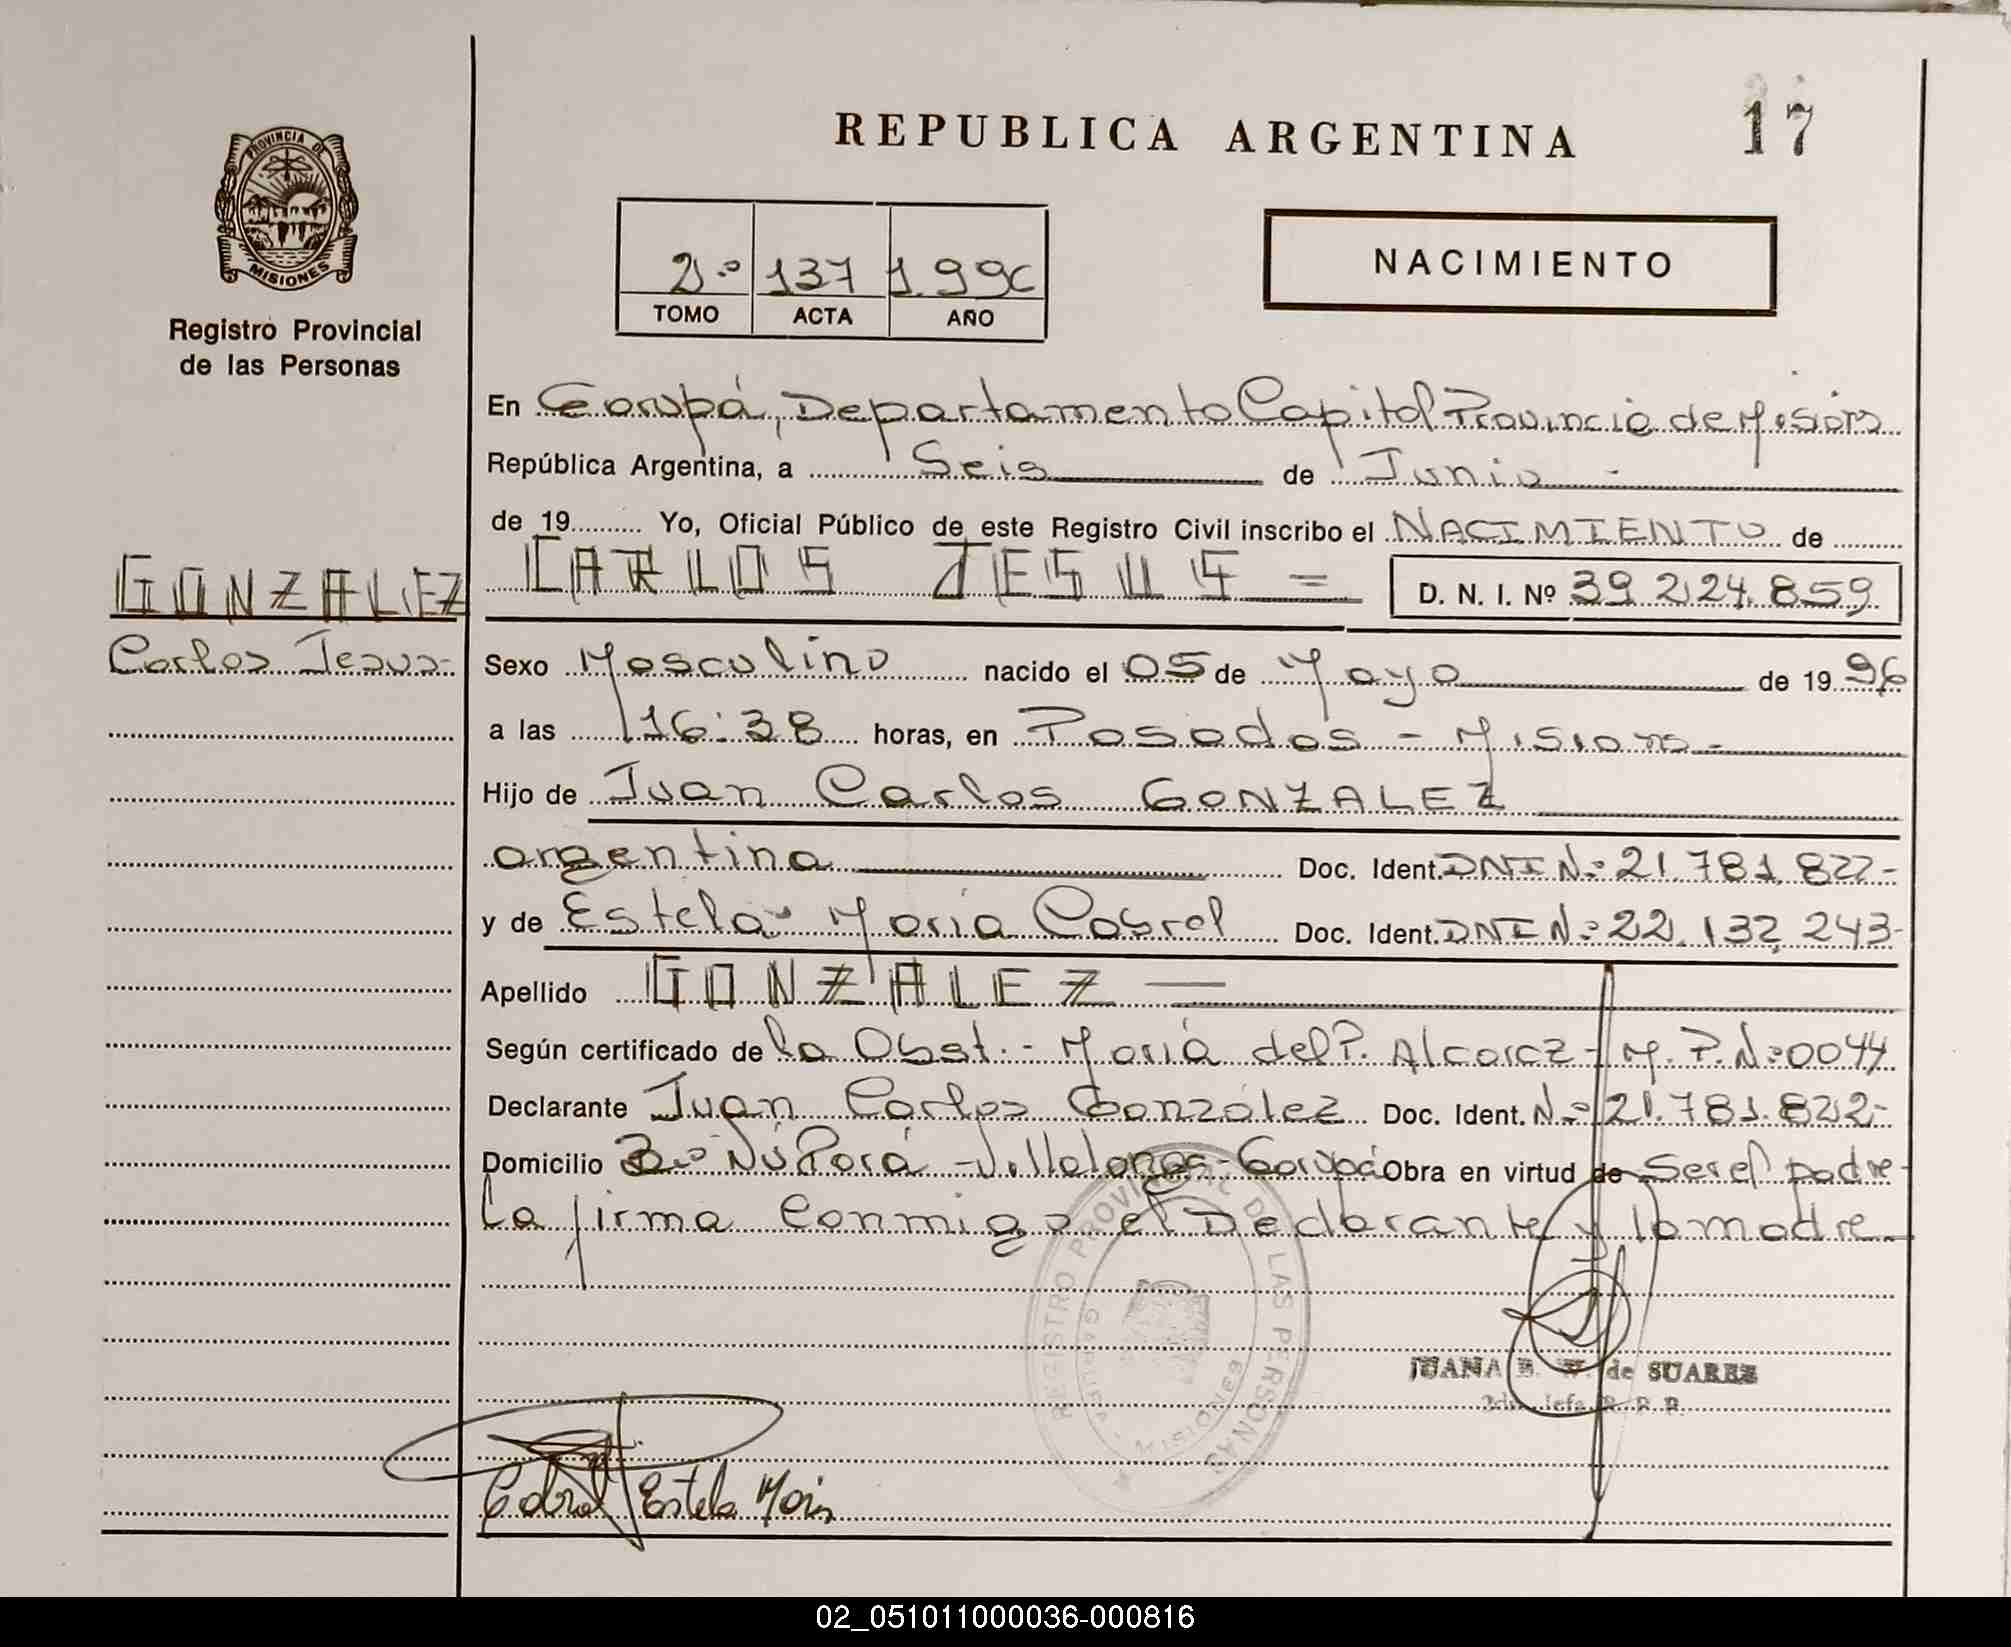 REPUBLICA ARGENTINA
17
PROVINCIA DE
MISIONES
Registro Provincial
de las Personas
2º 137 1.996
TOMO ACTA AÑO
NACIMIENTO
En Garupá, Departamento Capital Provincia de Misiones
República Argentina, a Seis de Junio -
de 19 Yo, Oficial Público de este Registro Civil inscribo el NACIMIENTO de
GONZALEZ
Carlos Jesus-
CARLOS JESUS = D. N. I. Nº 39 224.859
Sexo Masculino nacido el 05 de Mayo de 19 96
a las 16:38 horas, en Posadas - Misiones -
Hijo de Juan Carlos GONZALEZ
argentina Doc. Ident. DNI Nº 21.781.822-
y de Estela María Cabrel Doc. Ident. DNI Nº 22.132.243-
Apellido GONZALEZ —
Según certificado de la Obst.- María del P. Alcaraz - M. P. Nº 0044
Declarante Juan Carlos González Doc. Ident. Nº 21.781.822-
Domicilio Bº Ñú Porá - Villalonga - Garupá Obra en virtud de Ser el padre-
La firma conmigo el Declarante y la madre-
REGISTRO PROVINCIAL DE LAS PERSONAS
GARUPA - MISIONES
JUANA B. W. de SUAREZ
Jefa R. P. P.
Cabral Estela Maria
02_051011000036-000816